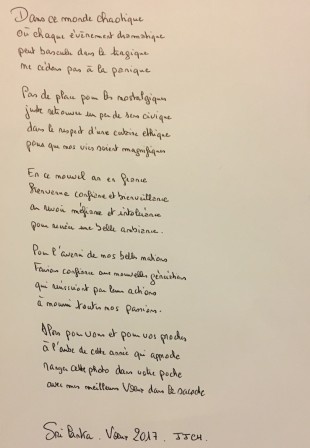 Dans ce monde chaotique
où chaque évènement dramatique
peut basculer dans le tragique
ne cédons pas à la panique
Pas de place pour les nostalgiques
juste retrouver un peu de sens civique
dans le respect d'une certaine éthique
pour que nos vies soient magnifiques
En ce nouvel an en France
Bienvenue confiance et bienveillance
au revoir méfiance et intolérance
pour recréer une belle ambiance.
Pour l'avenir de nos belles nations
Faisons confiance aux nouvelles générations
qui réussiront par leurs actions
à nourrir toutes nos passions.
Alors pour vous et pour vos proches
à l'aube de cette année qui approche
rangez cette photo dans votre poche
avec mes meilleurs Vœux dans la sacoche
Sri Lanka. Vœux 2017.